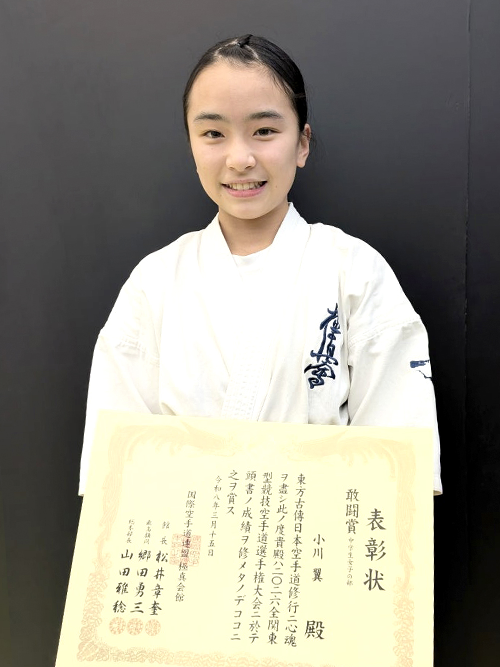 極真會
表彰状
敢闘賞 中学生女子の部
小川 翼 殿
東方古傳日本空手道修行ニ心魂
ヲ盡シ此ノ度貴殿ハ二〇二六全関東
型競技空手道選手権大会ニ於テ
頭書ノ成績ヲ修メタノデココニ
之ヲ賞ス
令和八年三月十五日
国際空手道連盟極真会館
館長 松井章奎
最高顧問 郷田勇三
山田雅稔